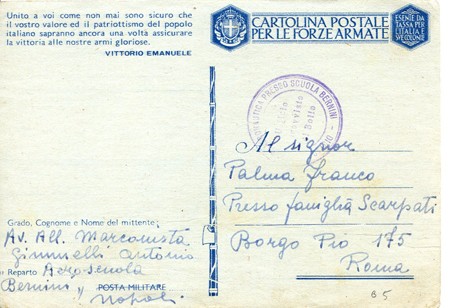 Unito a voi come non mai sono sicuro che
il vostro valore ed il patriottismo del popolo
italiano sapranno ancora una volta assicurare
la vittoria alle nostre armi gloriose.
VITTORIO EMANUELE
CARTOLINA POSTALE
PER LE FORZE ARMATE
ESENTE DA
TASSA PER
L'ITALIA
E SVE COLONIE
PRESSO SCUOLA BERNINI
Al signor
Palma Franco
Presso famiglia Scarpati
Borgo Pio 175
Roma
Grado, Cognome e Nome del mittente:
Av. All. Marconista
Antonio
Reparto Aeroscuola
Bernini "
POSTA MILITARE
Napoli